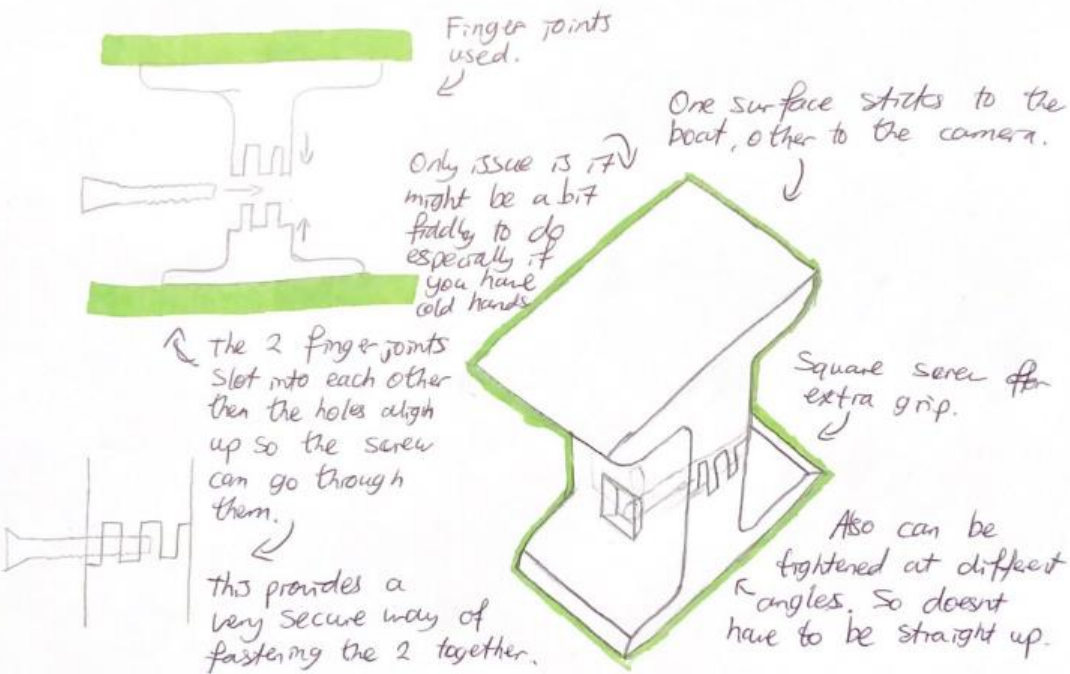 Finger joints
used.
One surface sticks to the
boat, other to the camera.
Only issue is it
might be a bit
fiddly to do
especially if
you have
cold hands
the 2 finger joints
slot into each other
then the holes align
up so the screw
can go through
them.
Square screw for
extra grip.
this provides a
very secure way of
fastening the 2 together.
Also can be
tightened at different
angles. So doesnt
have to be straight up.